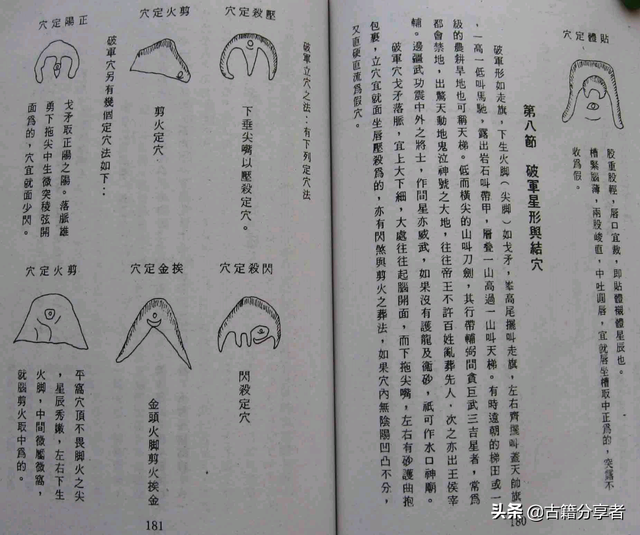 貼體定穴
股重股輕，唇口宜敧，即貼體襯體星辰也。
槽緊腦薄，兩股峻直，中吐圓唇，宜就唇坐槽取中正爲的，突露不
收爲假。
第八節　破軍星形與結穴
破軍形如走旗，下生火脚（尖脚）如戈矛，峯高尾擺叫走旗，左右齊擺叫蓋天帥旗
，一高一低叫馬馳，露出岩石叫帶甲，層叠一山高過一山叫天梯。有時遠朝的梯田或一
級的農耕旱地也可稱天梯。低而橫尖的山叫刀劍，其行帶輔弼問貪巨武三吉星者，常爲
都會禁地，出驚天動地鬼泣神號之大地，往往帝王不許百姓亂葬先人，次之亦出王侯宰
輔。邊疆武功震中外之將士，作問星亦威武，如果沒有護龍及衞砂，祇可作水口神廟。
破軍穴戈矛落脈，宜上大下細，大處往往起腦開面，而下拖尖嘴，左右有砂護曲抱
包裹，立穴宜就面坐唇壓殺爲的，亦有閃煞與剪火之葬法，如果穴內無陰陽凹凸不分，
又直硬直流爲假穴。
180
破軍立穴之法：有下列定穴法
壓殺定穴
下垂尖嘴以壓殺定穴。
剪火定穴
剪火定穴
破軍穴另有幾個定穴法如下：
正陽定穴
戈矛取正陽之陽。落脈雄
勇下拖尖中生微突稜弦開
面爲的，穴宜就面少閃。
閃殺定穴
閃殺定穴
挨金定穴
金頭火脚剪火挨金
剪火定穴
平窩穴頂不畏脚火之尖
，星辰秀嫩，左右下生
火脚，中間微靨微窩，
就腦剪火取中爲的。
181
头条 @古籍分享者